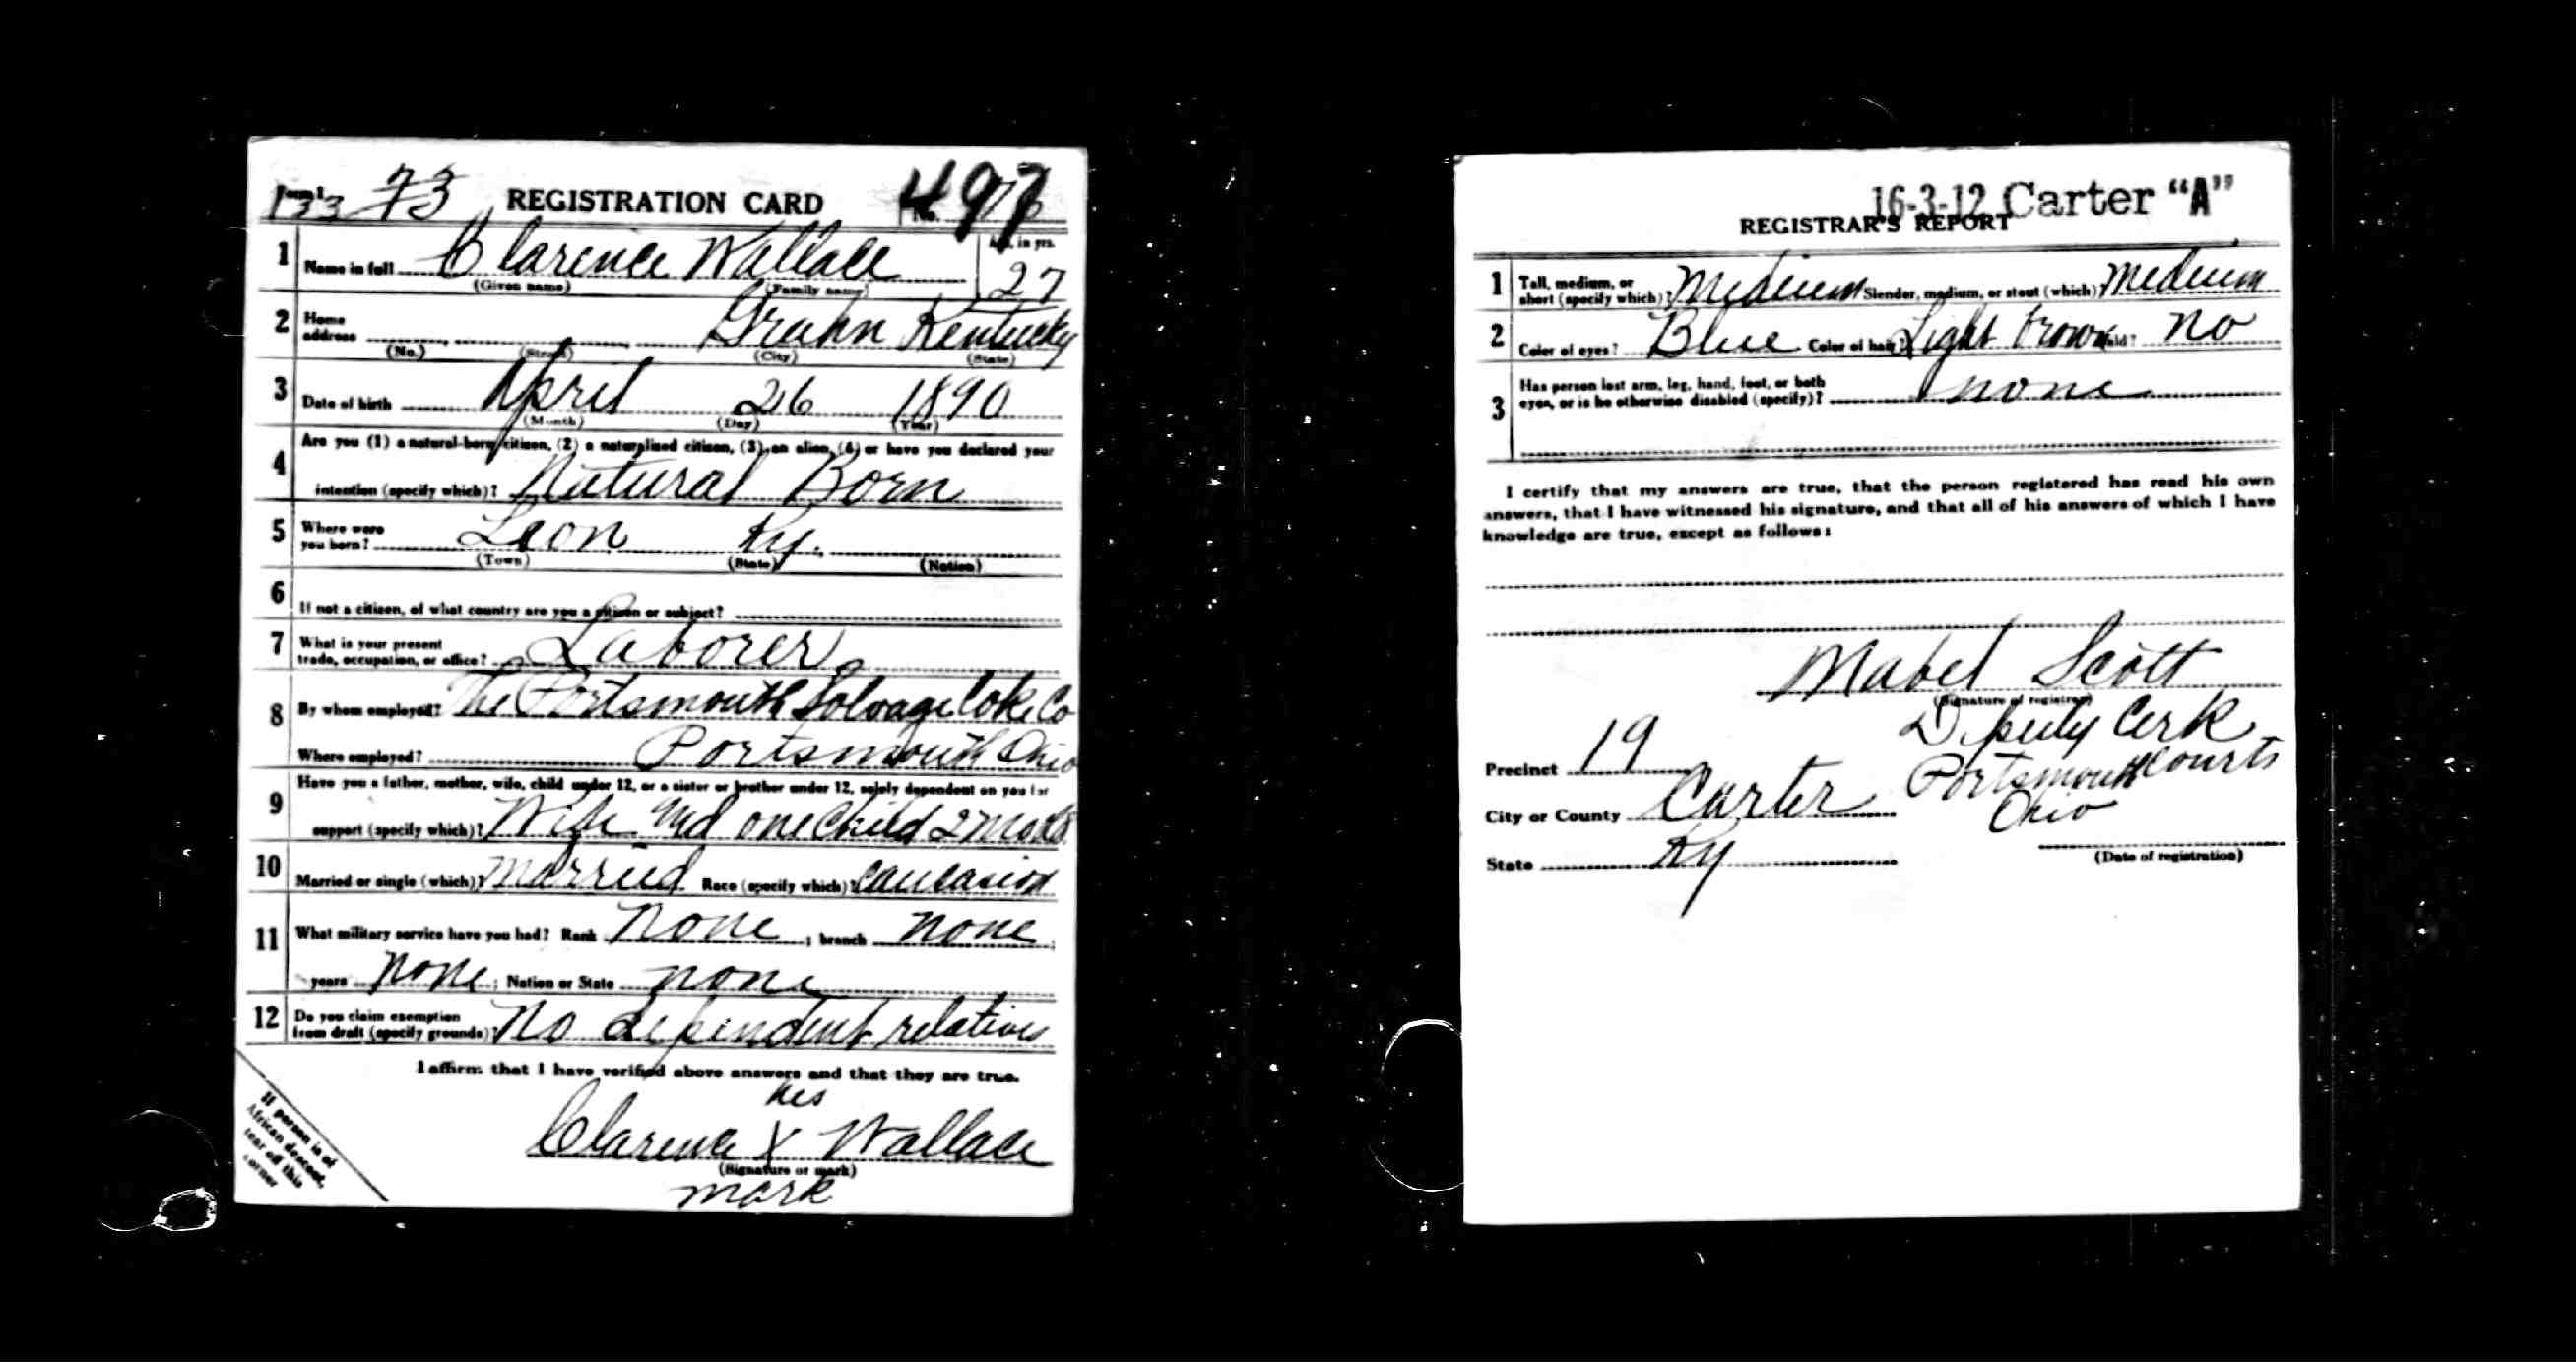 Form 1
133 73 REGISTRATION CARD No. 497
1 Name in full Clarence Wallace Age, in yrs. 27
(Given name) (Family name)
2 Home address Grahn Kentucky
(No.) (Street) (City) (State)
3 Date of birth April 26 1890
(Month) (Day) (Year)
4 Are you (1) a natural-born citizen, (2) a naturalized citizen, (3) an alien, (4) or have you declared your
intention (specify which)? Natural Born
5 Where were you born? Leon Ky.
(Town) (State) (Nation)
6 If not a citizen, of what country are you a citizen or subject?
7 What is your present trade, occupation, or office? Laborer
8 By whom employed? The Portsmouth Solvage Coke Co
Where employed? Portsmouth Ohio
9 Have you a father, mother, wife, child under 12, or a sister or brother under 12, solely dependent on you for
support (specify which)? Wife and one Child 2 mo
10 Married or single (which)? Married Race (specify which)? Caucasion
11 What military service have you had? Rank None ; branch None ;
years None ; Nation or State none
12 Do you claim exemption from draft (specify grounds)? No dependent relatives
I affirm that I have verified above answers and that they are true.
his
Clarence X Wallace
(Signature or mark)
mark
If person is of
African descent,
tear off this
corner
16-3-12 Carter "A"
REGISTRAR'S REPORT
1 Tall, medium, or short (specify which)? Medium Slender, medium, or stout (which)? Medium
2 Color of eyes? Blue Color of hair? Light brown Bald? No
3 Has person lost arm, leg, hand, foot, or both
eyes, or is he otherwise disabled (specify)? none
I certify that my answers are true, that the person registered has read his own
answers, that I have witnessed his signature, and that all of his answers of which I have
knowledge are true, except as follows:
Mabel Scott
(Signature of registrar)
Deputy Cerk
Precinct 19
Courts
City or County Carter Portsmouth
Ohio
State Ky
(Date of registration)